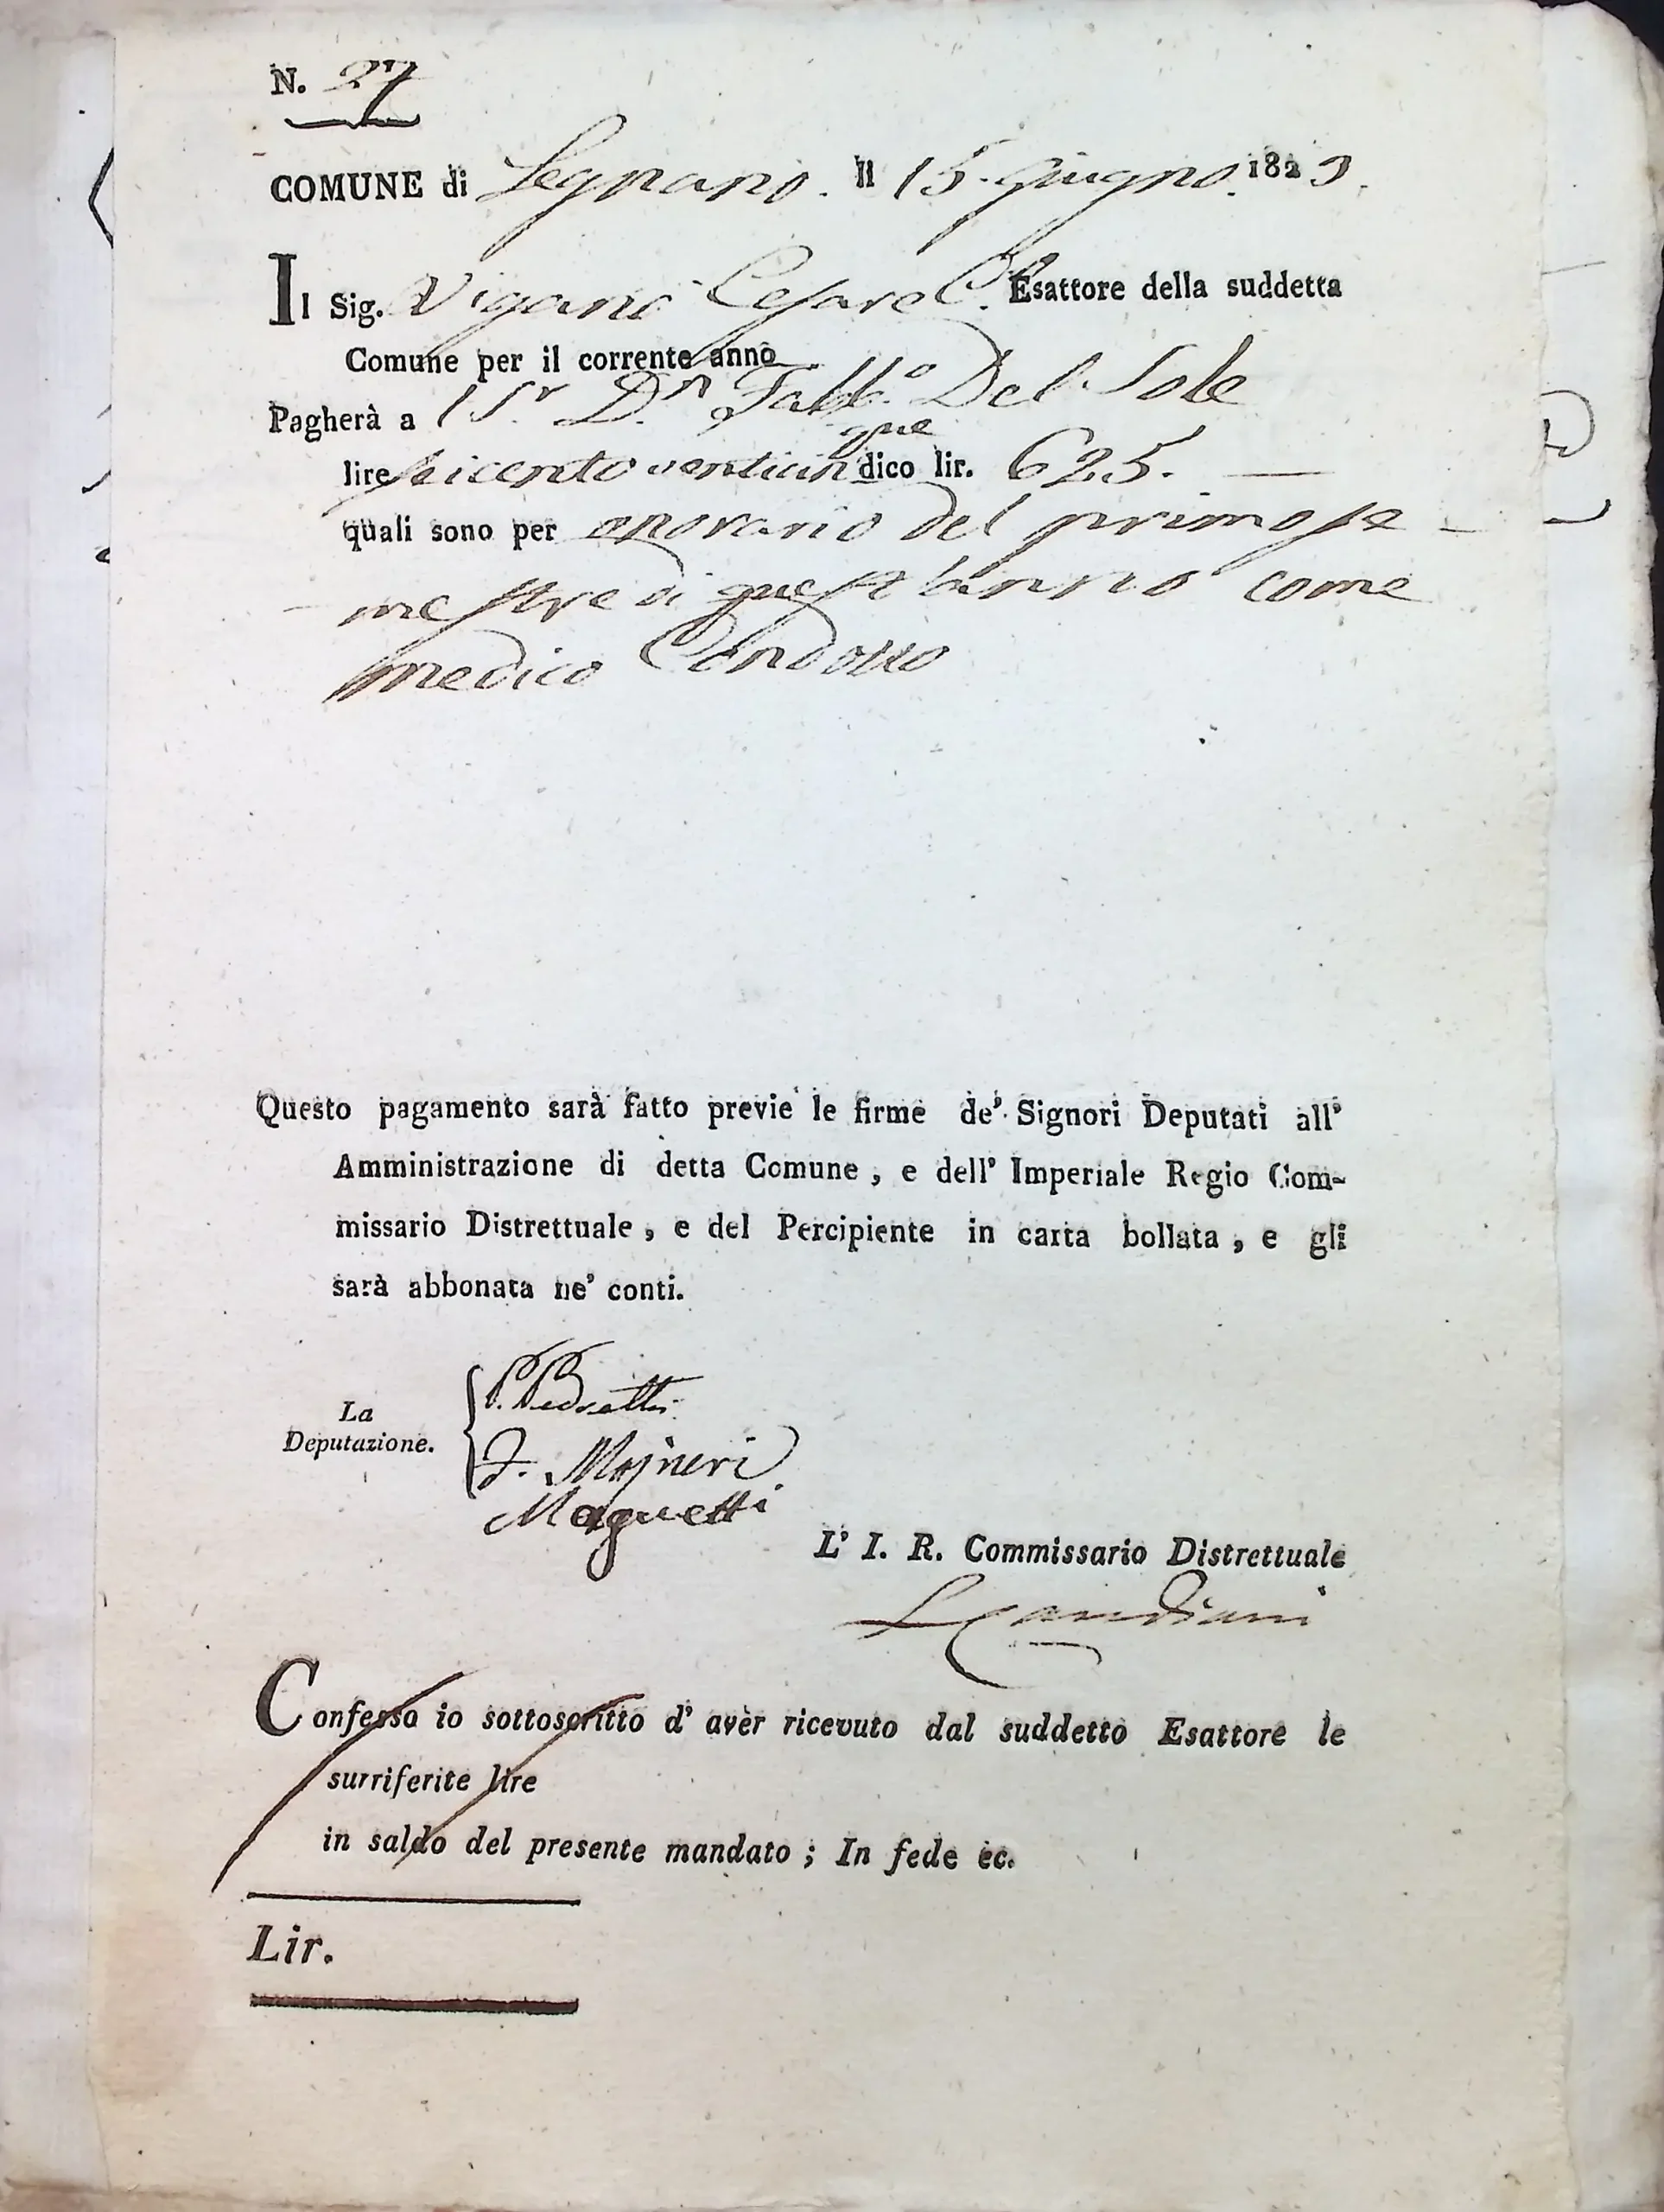 N. 27
COMUNE di Legnano. Il 15. Giugno. 1823.
Il Sig. Viganò Cesare C. Esattore della suddetta
Comune per il corrente anno
Pagherà a l Sr. Dn. Del Sole
que
lire seicento venticin dico lir. 625. —
quali sono per onorario del primo se-
-mestre di quest'anno come
medico Condotto
Questo pagamento sarà fatto previe le firme de' Signori Deputati all'
Amministrazione di detta Comune, e dell' Imperiale Regio Com-
missario Distrettuale, e del Percipiente in carta bollata, e gli
sarà abbonata ne' conti.
La
Deputazione.
P. Pedretti
F. Majneri
Magnetti
L' I. R. Commissario Distrettuale
L Candiani
Confesso io sottoscritto d' aver ricevuto dal suddetto Esattore le
surriferite lire
in saldo del presente mandato; In fede ec.
Lir.